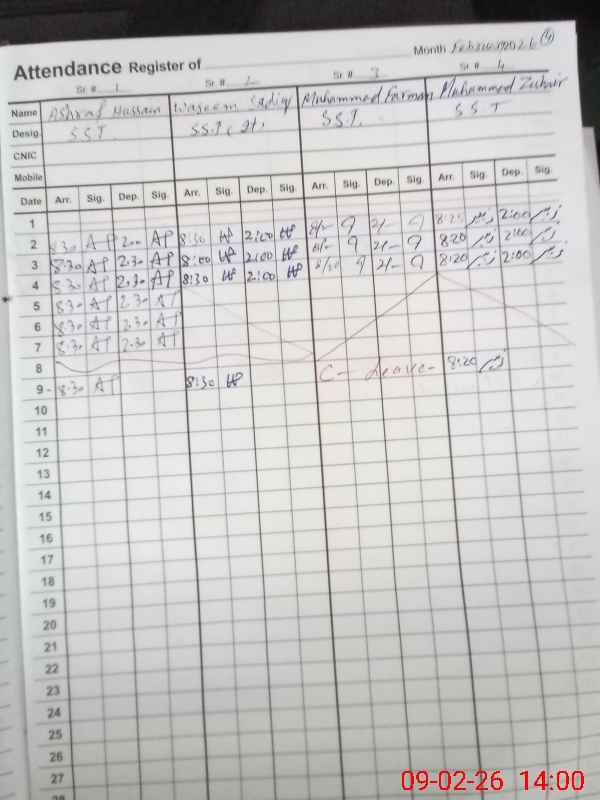 Month February 2026 (4)
Attendance Register of
Sr # 1 Sr # 2 Sr # 3 Sr # 4
Name Ashraf Hussain Waseem Sadiq Muhammed Farman Muhammed Zubair
Desig. S.S.T. S.S.T. S.S.T
CNIC
Mobile
Date Arr. Sig. Dep. Sig. Arr. Sig. Dep. Sig. Arr. Sig. Dep. Sig. Arr. Sig. Dep. Sig.
1
2 8:30 AP 2:00 AP 8:30 2:00 8:25 زبیر 2:00 زبیر
3 8:30 AP 2:30 AP 8:00 2:00 8:20 زبیر 2:00 زبیر
4 8:30 AP 2:30 AP 8:30 2:00 8:20 زبیر 2:00 زبیر
5 8:30 AP 2:30 AP
6 8:30 AP 2:30 AP
7 8:30 AP 2:30 AP
8
9 - 8:30 AP 8:30 C- Leave- 8:20 زبیر
10
11
12
13
14
15
16
17
18
19
20
21
22
23
24
25
26
27
28
09-02-26 14:00